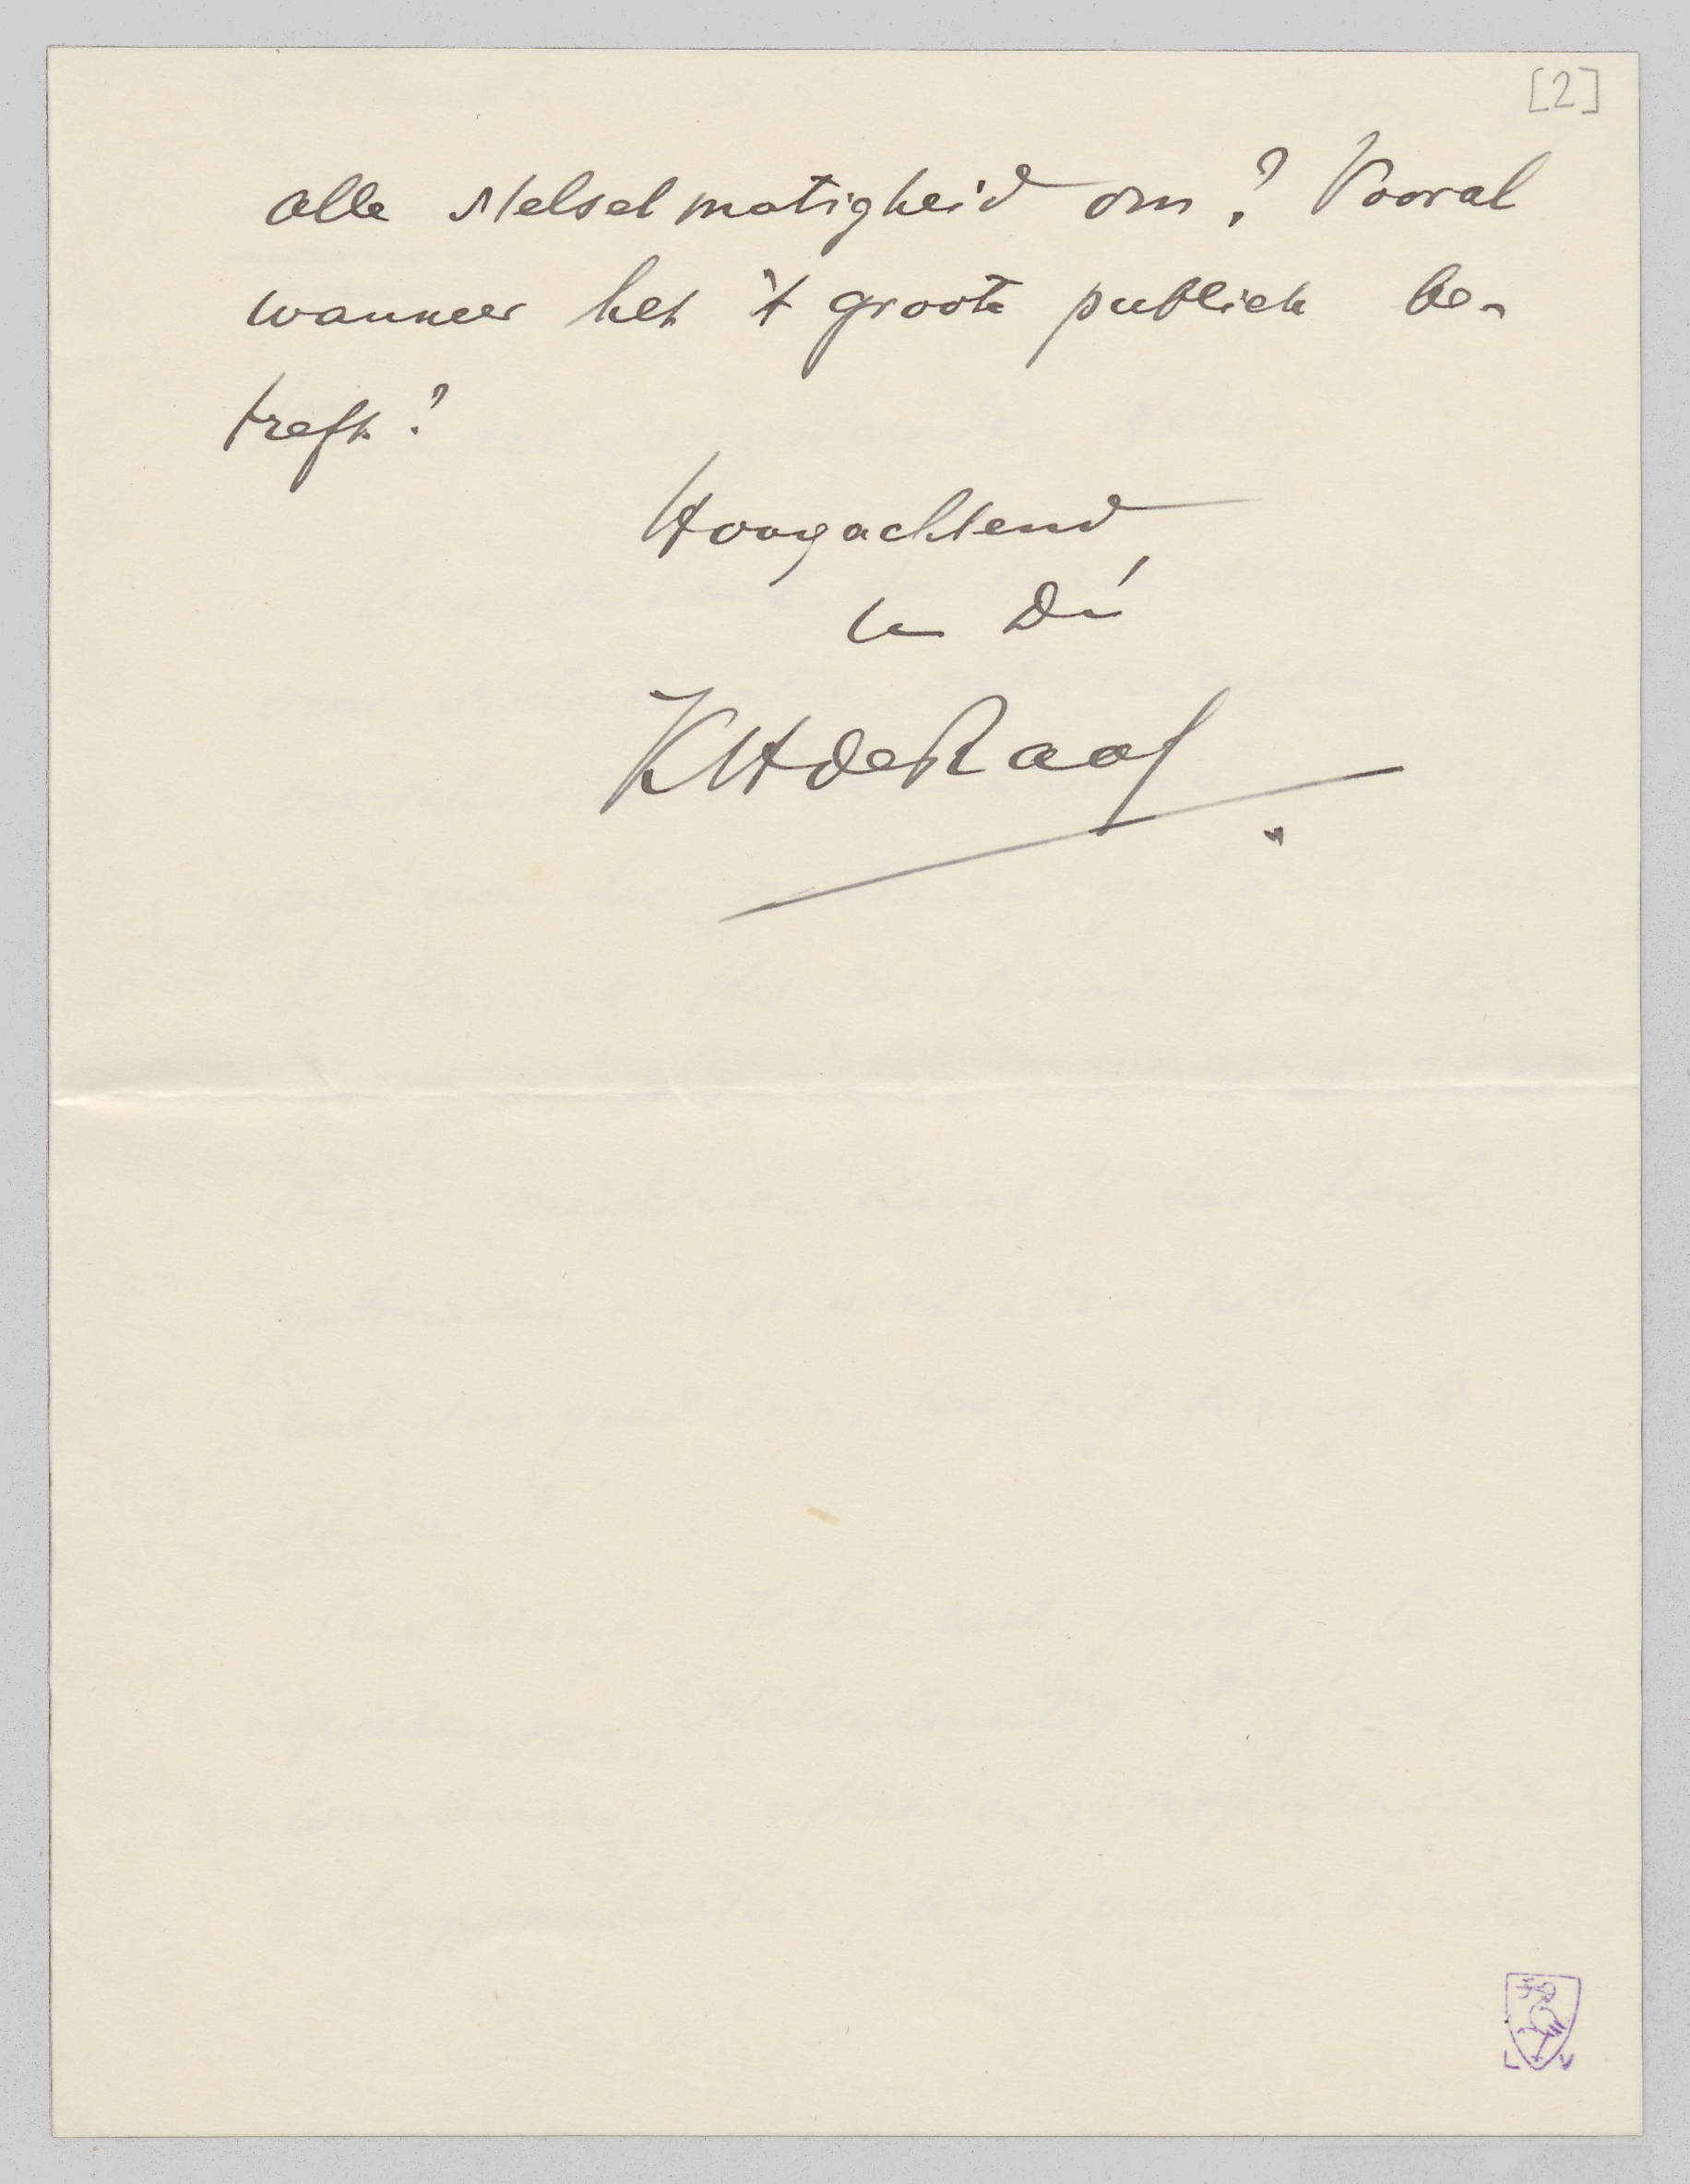 [2]
alle stelselmatigheid om? Vooral
wanneer het 't groote publiek be-
treft?
Hoogachtend,
Uw Dr
KHdeRaaf
L V